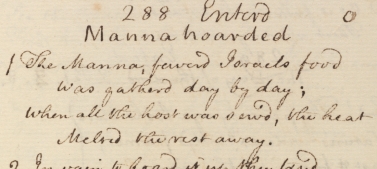 288 Enterd 0
Manna hoarded
1 The Manna, favord Israels food
Was gatherd day by day;
When all the host was serv'd, the heat
Melted the rest away.
2 In vain to hoard it up they tried